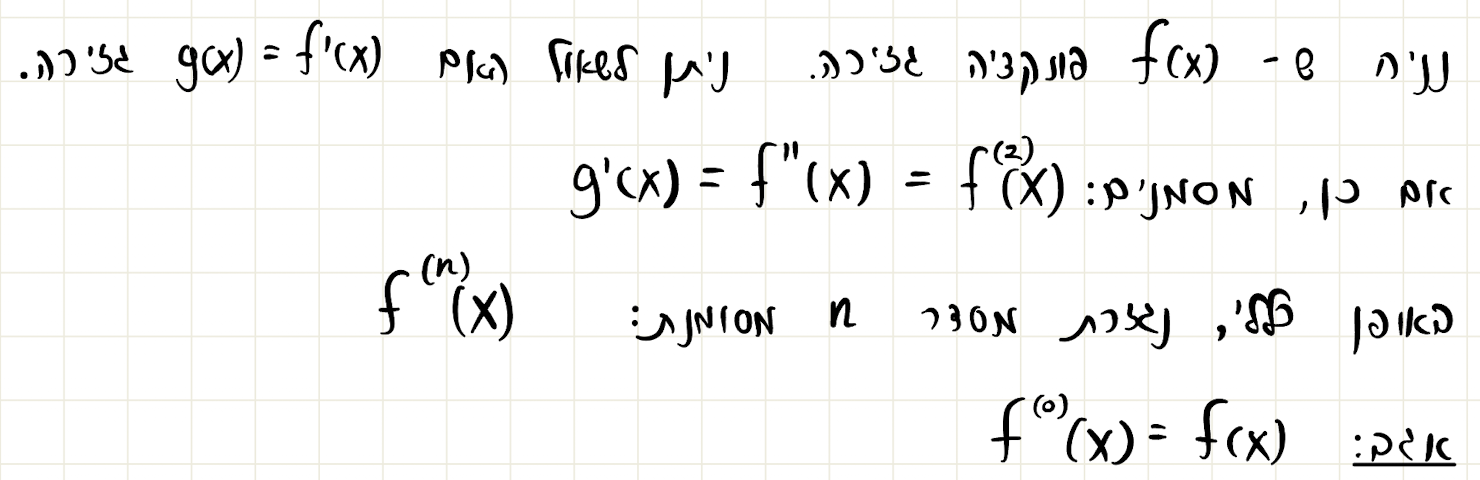 נניח ש- f(x) פונקציה גזירה. ניתן לשאול האם g(x) = f'(x) גזירה.
אם כן, מסמנים: g'(x) = f''(x) = f⁽²⁾(x)
באופן כללי, נגזרת מסדר n מסומנת: f⁽ⁿ⁾(x)
אגב: f⁽⁰⁾(x) = f(x)